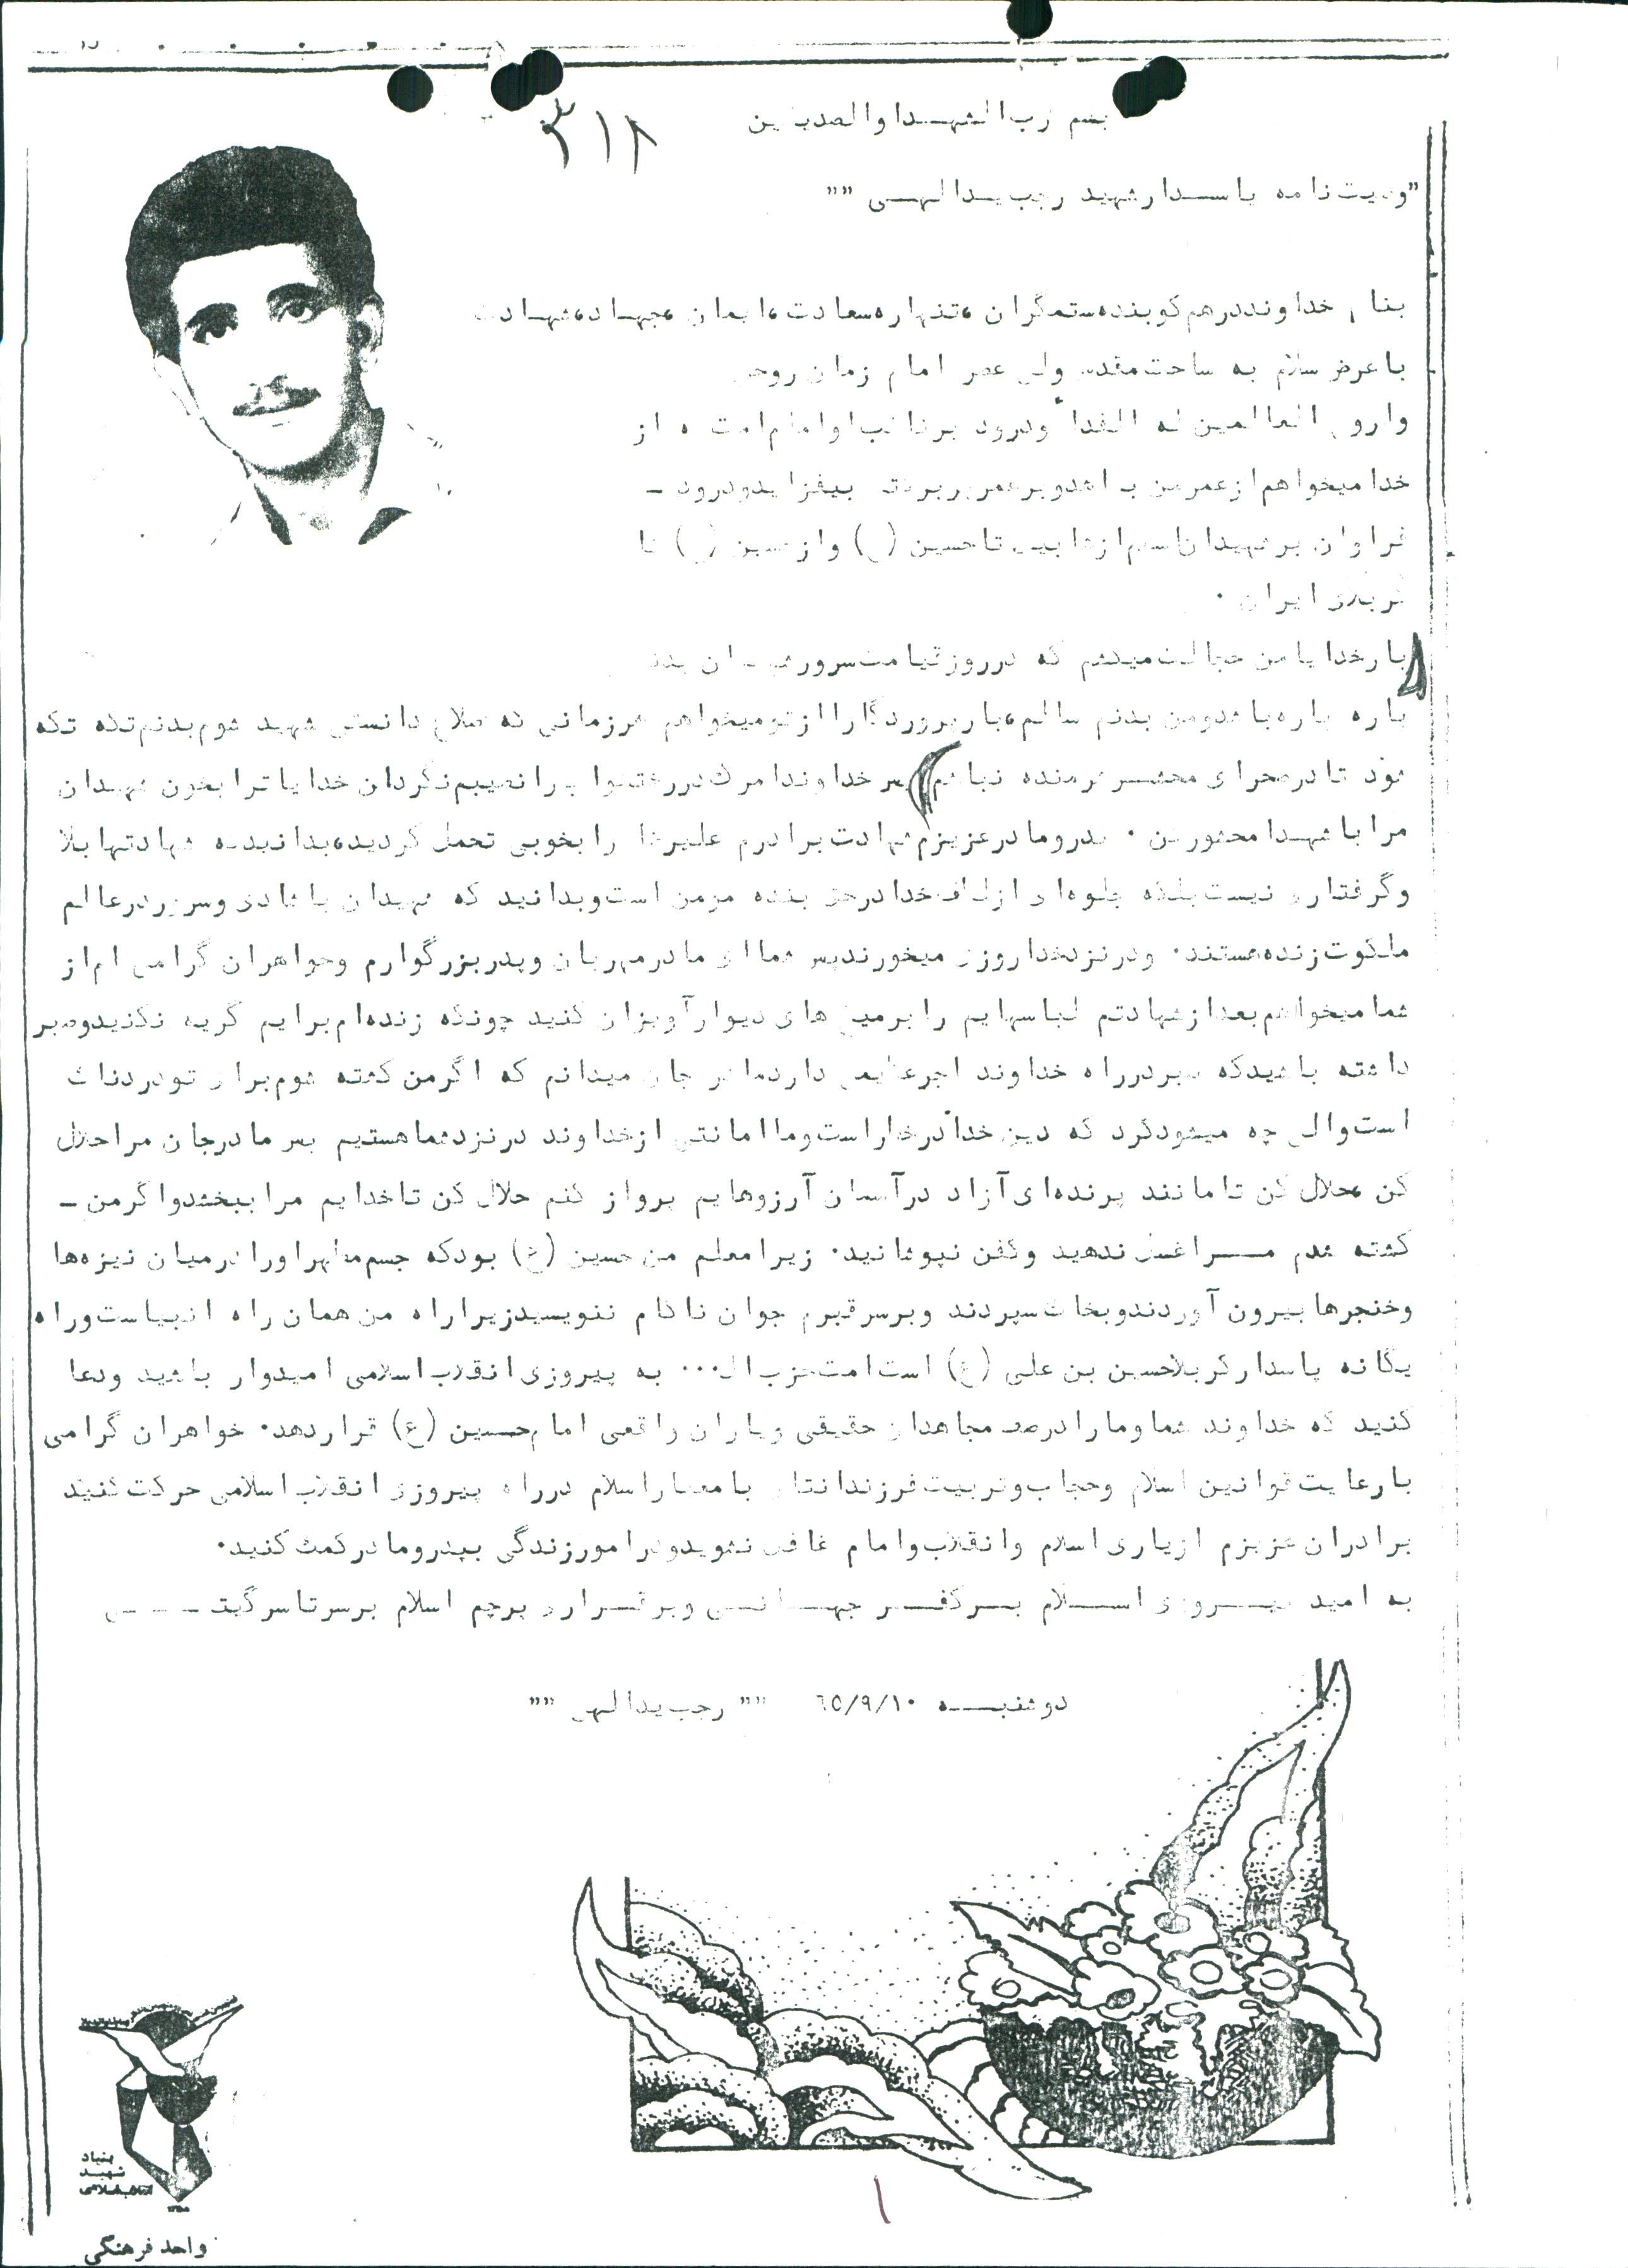 ۳۱۸
بسم رب الشهـــدا والصدیقین
"وصیت نامه پاســـدار شهید رجب یـــدالهـــی ""
بنام خداوند درهم کوبنده ستمگران ،تنها ره سعادت ،ایمان ،جهـاد ،شهـادت
با عرض سلام به ساحت مقدس ولی عصر امام زمان روحی
وارواح العالمین له الفداء ودرود برنائب او امام امت ه از
خدا میخواهم از عمر من بکاهد و بر عمر پربرکتش بیفزاید و درود ـ
فراوان بر شهیدان اسلام از هابیل تا حسین (ع) و از حسین (ع) تا
کربلای ایران .
بار خدایا من خجالت میکشم که در روز قیامت سرور شهیدان بدنش
پاره پاره باشد و من بدنم سالم ،بار پروردگارا از تو میخواهم هر زمانی که صلاح دانستی شهید شوم بدنم تکه تکه
شود تا در صحرای محشـــر شرمنده نباشم پس خداوندا مرگ در رختخواب را نصیبم نگردان خدایا ترا بخون شهیدان
مرا با شهـدا محشور کن . پدر و مادر عزیزم شهادت برادرم علیرضا را بخوبی تحمل کردید ،بدانید که شهادت تنها بلا
وگرفتاری نیست بلکه جلوه ای از لطف خدا در حق بنده مومن است و بدانید که شهیدان با شادی و سرور در عالم
ملکوت زنده هستند . و در نزد خدا روزی میخورند پس شما ای مادر مهربان و پدر بزرگوارم و خواهران گرامی ام از
شما میخواهم بعد از شهادتم لباسهایم را بر میخ های دیوار آویزان کنید چونکه زنده ام برایم گریه نکنید و صبر
داشته باشید که صبر در راه خداوند اجر عظیمی دارد مادر جان میدانم که اگر من کشته شوم برای تو دردناک
است والی چه میشود کرد که دین خدا در خطر است و ما امانتی از خداوند در نزد شما هستیم پس مادر جان مرا حلال
کن ،حلال کن تا مانند پرنده ای آزاد در آسمان آرزوهایم پرواز کنم حلال کن تا خدایم مرا ببخشد و اگر من ـ
کشته شدم مـــرا غسل ندهید و کفن نپوشانید . زیرا معلم من حسین (ع) بود که جسم مطهر او را در میان نیزه ها
و خنجرها بیرون آوردند و بخاک سپردند و بر سر قبرم جوان ناکام ننویسید زیرا راه من همان راه انبیاست و راه
یگانه پاسدار کربلا حسین بن علی (ع) است امت حزب ال... به پیروزی انقلاب اسلامی امیدوار باشید و دعا
کنید که خداوند شما و ما را در صف مجاهدان حقیقی و یاران واقعی امام حسین (ع) قرار دهد . خواهران گرامی
با رعایت قوانین اسلام و حجاب و تربیت فرزندانتان با معیار اسلام در راه پیروزی انقلاب اسلامی حرکت کنید
برادران عزیزم از یاری اسلام و انقلاب و امام غافل نشوید و در امور زندگی بپدر و مادر کمک کنید .
به امید پیـــروزی اســـلام بـــر کفـــر جهـــانـــی و برقـــراری پرچم اسلام بر سرتاسر گیتـــی
دوشنبـــه ٦٥/٩/١٠ "" رجب یدالهی ""
بنیاد
شهید
انقلاب اسلامی
واحد فرهنگی
۱